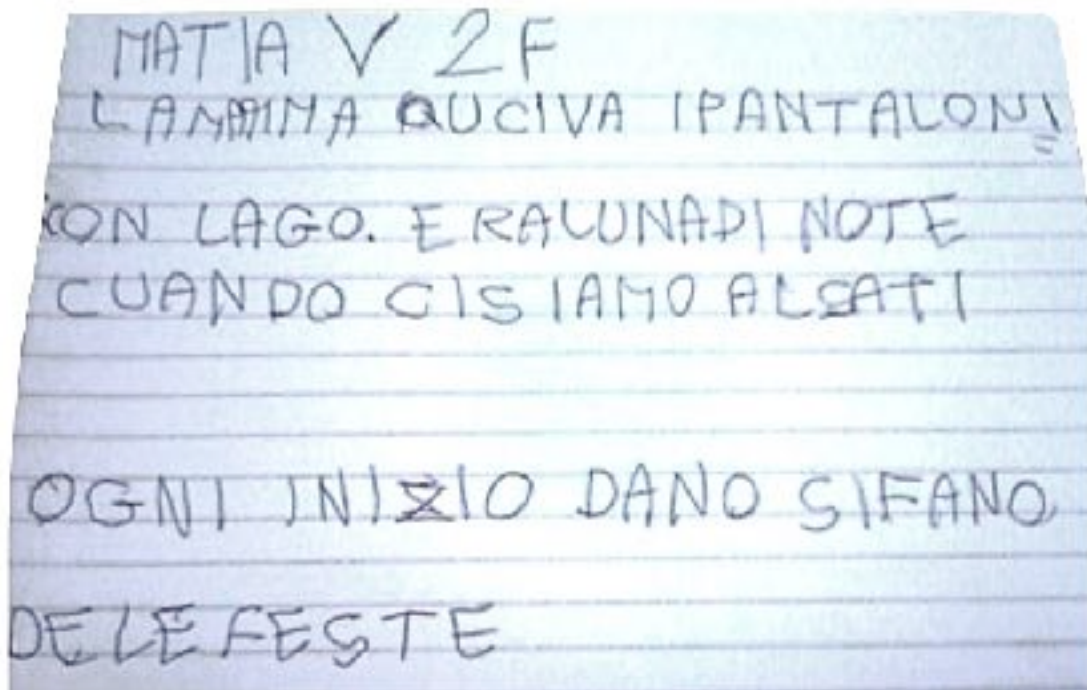 MATIA V 2F
LAMMMA QUCIVA IPANTALONI
KON LAGO. E RALUNADI NOTE
CUANDO CIS IAMO ALSATI
OGNI INIZIO DANO SIFANO
DELE FESTE